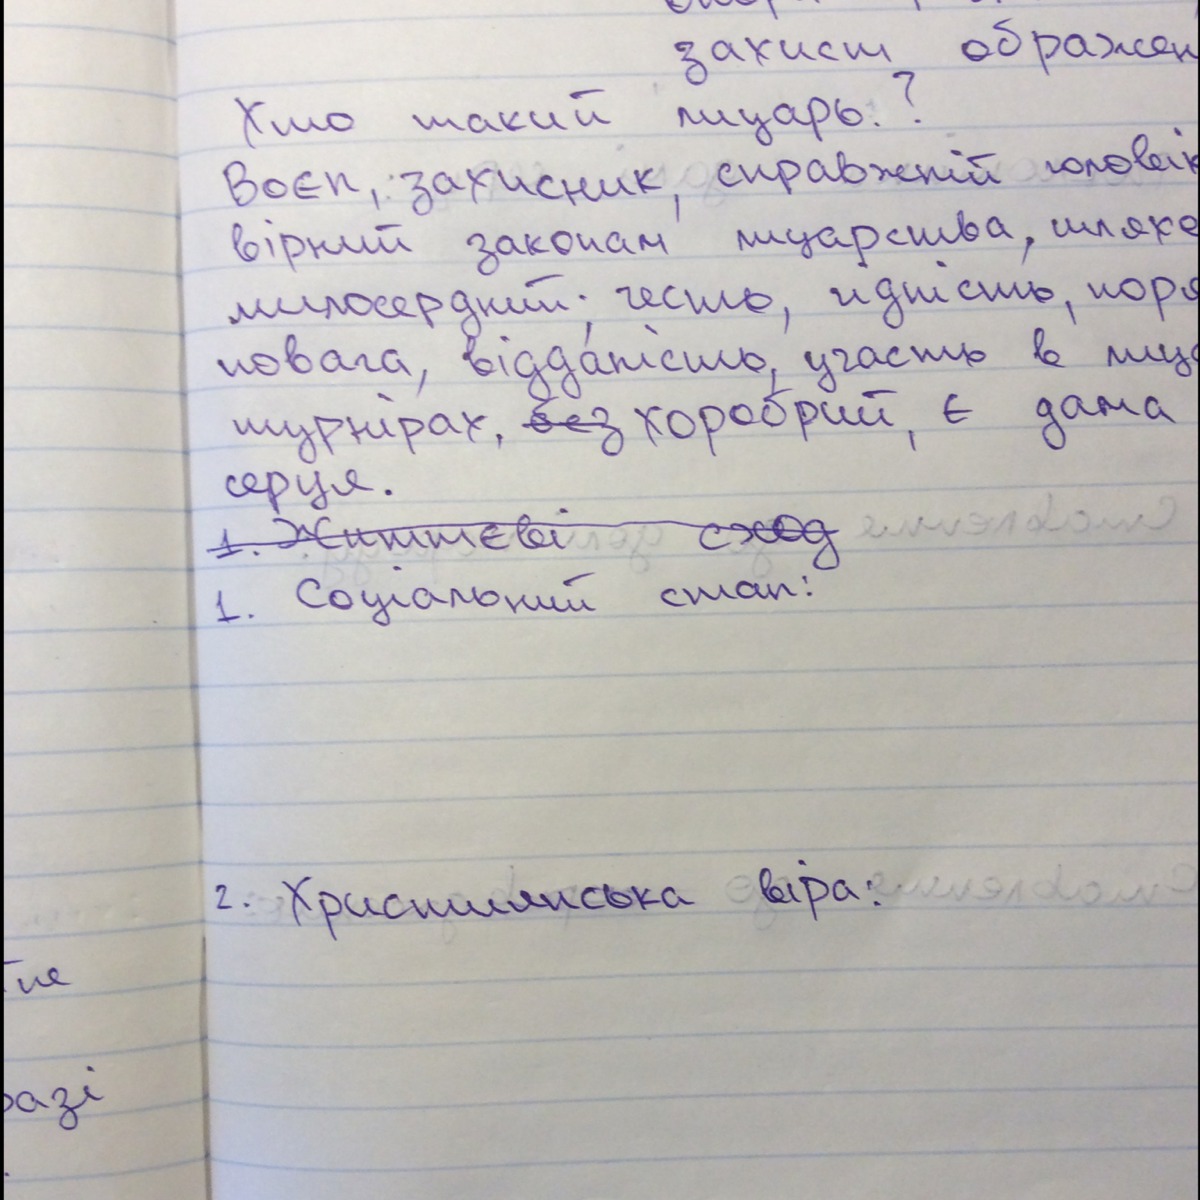 захист ображен
Хто такий лицарь?
Воєн, захисник, справжній чоловік
вірний законам лицарства, шляхе
милосердний; честь, гідність, поря
повага, віддатість, участь в лица
турнірах, без хоробрий, є дама
серця.
1. Життєві сход
1. Соціальний стан:
2. Християнська віра:
тие
разі